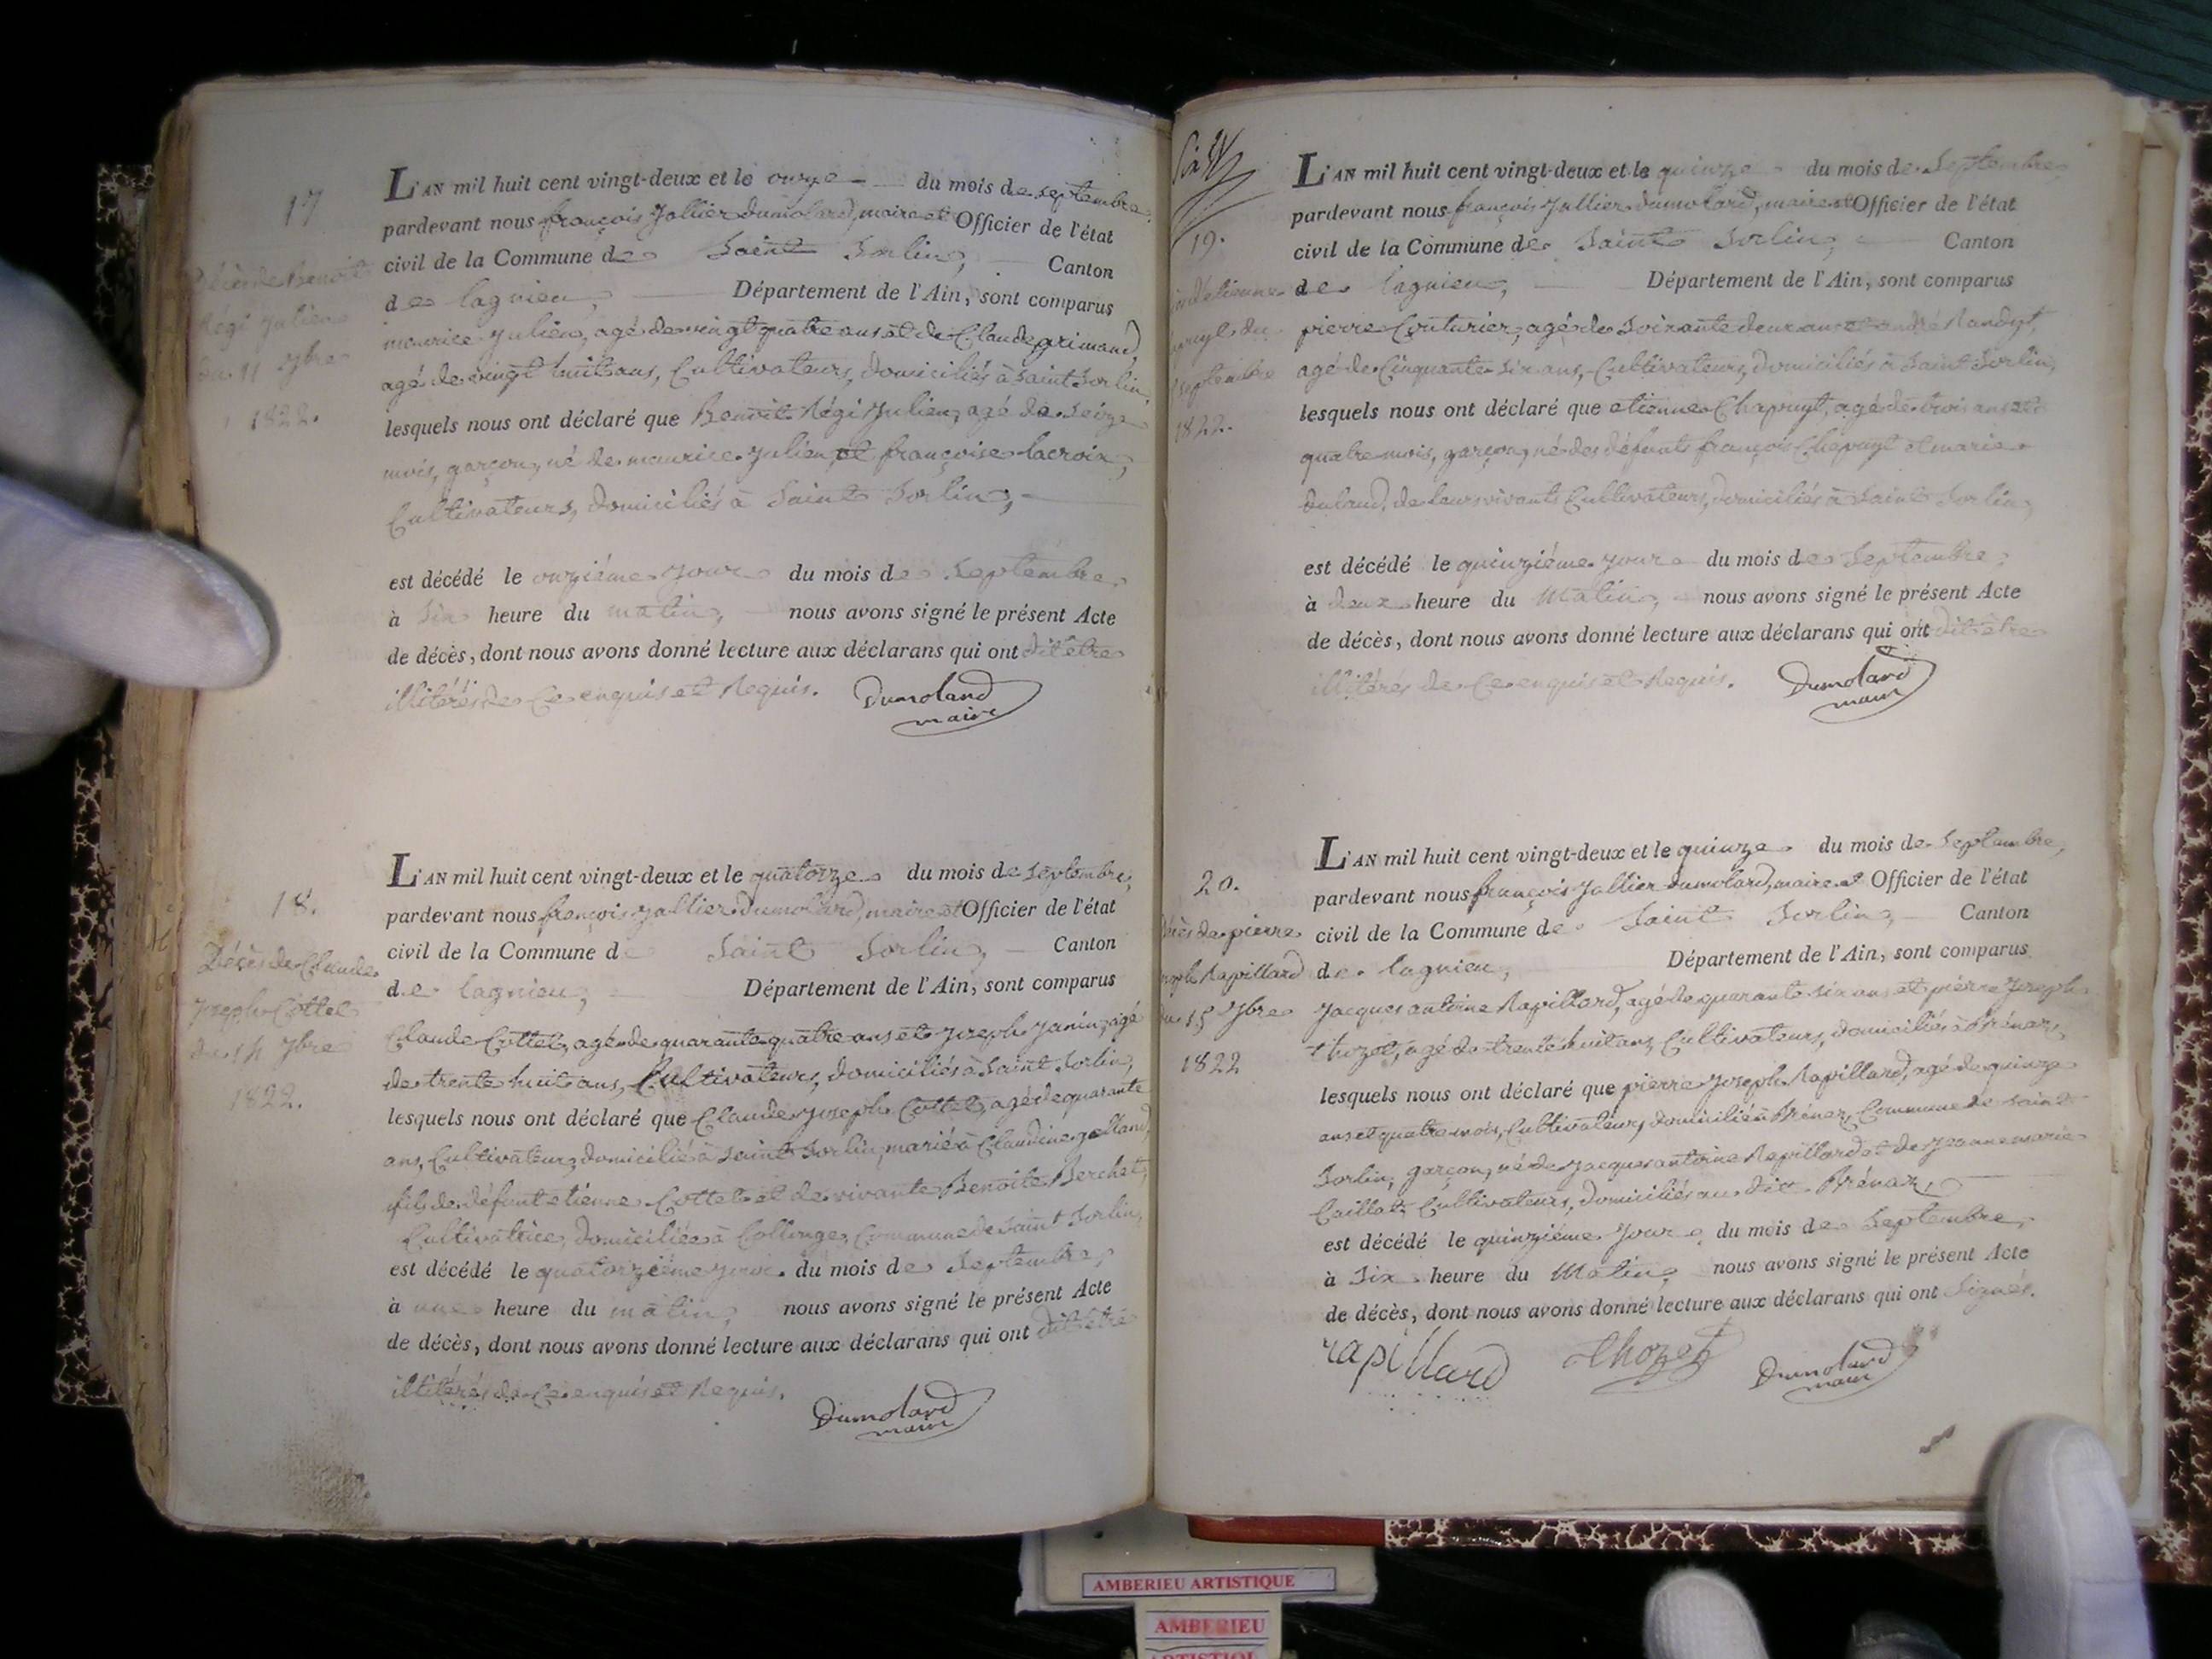 17
L'AN mil huit cent vingt-deux et le onze du mois de septembre,
pardevant nous françois Jullier Dumolard, maire et Officier de l'état
civil de la Commune de Saint Sorlin, Canton
de lagnieu, Département de l'Ain, sont comparus
maurice Julien, agé de vingt quatre ans et de Claude grimaud,
agé de vingt huit ans, Cultivateurs, domiciliés à Saint Sorlin,
lesquels nous ont déclaré que Benoit Régi Julien, agé de Seize
mois, garçon, né de maurice Julien et françoise lacroix,
Cultivateurs, domiciliés à Saint Sorlin,
est décédé le onziéme jour du mois de Septembre,
à Six heure du matin, nous avons signé le présent Acte
de décès, dont nous avons donné lecture aux déclarans qui ont dit être
illitérés de Ce enquis et Requis. Dumolard
maire
de Benoit
Régi Julien
du 11 7bre
1822.
18.
Décès de Claude
Joseph Cottet
du 14 7bre
1822.
L'AN mil huit cent vingt-deux et le quatorze du mois de Septembre,
pardevant nous françois Jullier Dumolard, maire et Officier de l'état
civil de la Commune de Saint Sorlin, Canton
de lagnieu, Département de l'Ain, sont comparus
Claude Cottet, agé de quarante quatre ans et Joseph Janin, agé
de trente huit ans, Cultivateurs, domiciliés à Saint Sorlin,
lesquels nous ont déclaré que Claude Joseph Cottet, agé de quarante
ans, Cultivateur, domicilié à Saint Sorlin, marié à Claudine galland,
fils de défunt etienne Cottet et de vivante Benoite Berchet,
Cultivatrice, domiciliée à Collonge, Commune de Saint Sorlin,
est décédé le quatorziéme jour du mois de Septembre,
à une heure du matin, nous avons signé le présent Acte
de décès, dont nous avons donné lecture aux déclarans qui ont dit être
illitérés de Ce enquis et Requis.
Dumolard
maire
19.
d'etienne
du
septembre
1822.
L'AN mil huit cent vingt-deux et le quinze du mois de Septembre
pardevant nous françois Jullier Dumolard, maire et Officier de l'état
civil de la Commune de Saint Sorlin, Canton
de lagnieu, Département de l'Ain, sont comparus
pierre Couturier, agé de Soixante deux ans et andré Nandyt,
agé de Cinquante Six ans, Cultivateurs, domiciliés à Saint Sorlin,
lesquels nous ont déclaré que etienne Chapuyt, agé de trois ans et
quatre mois, garçon, né des défunts françois Chapuyt et marie
Duland, de leurs vivants Cultivateurs, domiciliés à Saint Sorlin,
est décédé le quinziéme jour du mois de Septembre,
à deux heure du Matin, nous avons signé le présent Acte
de décès, dont nous avons donné lecture aux déclarans qui ont dit être
illitérés de Ce enquis et Requis. Dumolard
maire
20.
Décès de pierre
Joseph Rapillard
du 15 7bre
1822
L'AN mil huit cent vingt-deux et le quinze du mois de Septembre,
pardevant nous françois Jullier Dumolard, maire et Officier de l'état
civil de la Commune de Saint Sorlin, Canton
de lagnieu, Département de l'Ain, sont comparus
Jacques antoine Rapillard, agé de quarante Six ans et pierre Joseph
thozet, agé de trente huit ans, Cultivateurs, domiciliés à Brénaz,
lesquels nous ont déclaré que pierre Joseph Rapillard, agé de quinze
ans et quatre mois, Cultivateur, domicilié à Brénaz, Commune de Saint
Sorlin, garçon, né de Jacques antoine Rapillard et de Jeanne marie
Caillat, Cultivateurs, domiciliés au dit Brénaz,
est décédé le quinziéme Jour du mois de Septembre,
à Six heure du Matin, nous avons signé le présent Acte
de décès, dont nous avons donné lecture aux déclarans qui ont Signés.
rapillard thozet Dumolard
maire
AMBERIEU ARTISTIQUE
AMBERIEU